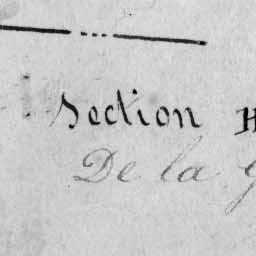 Section H
De la G